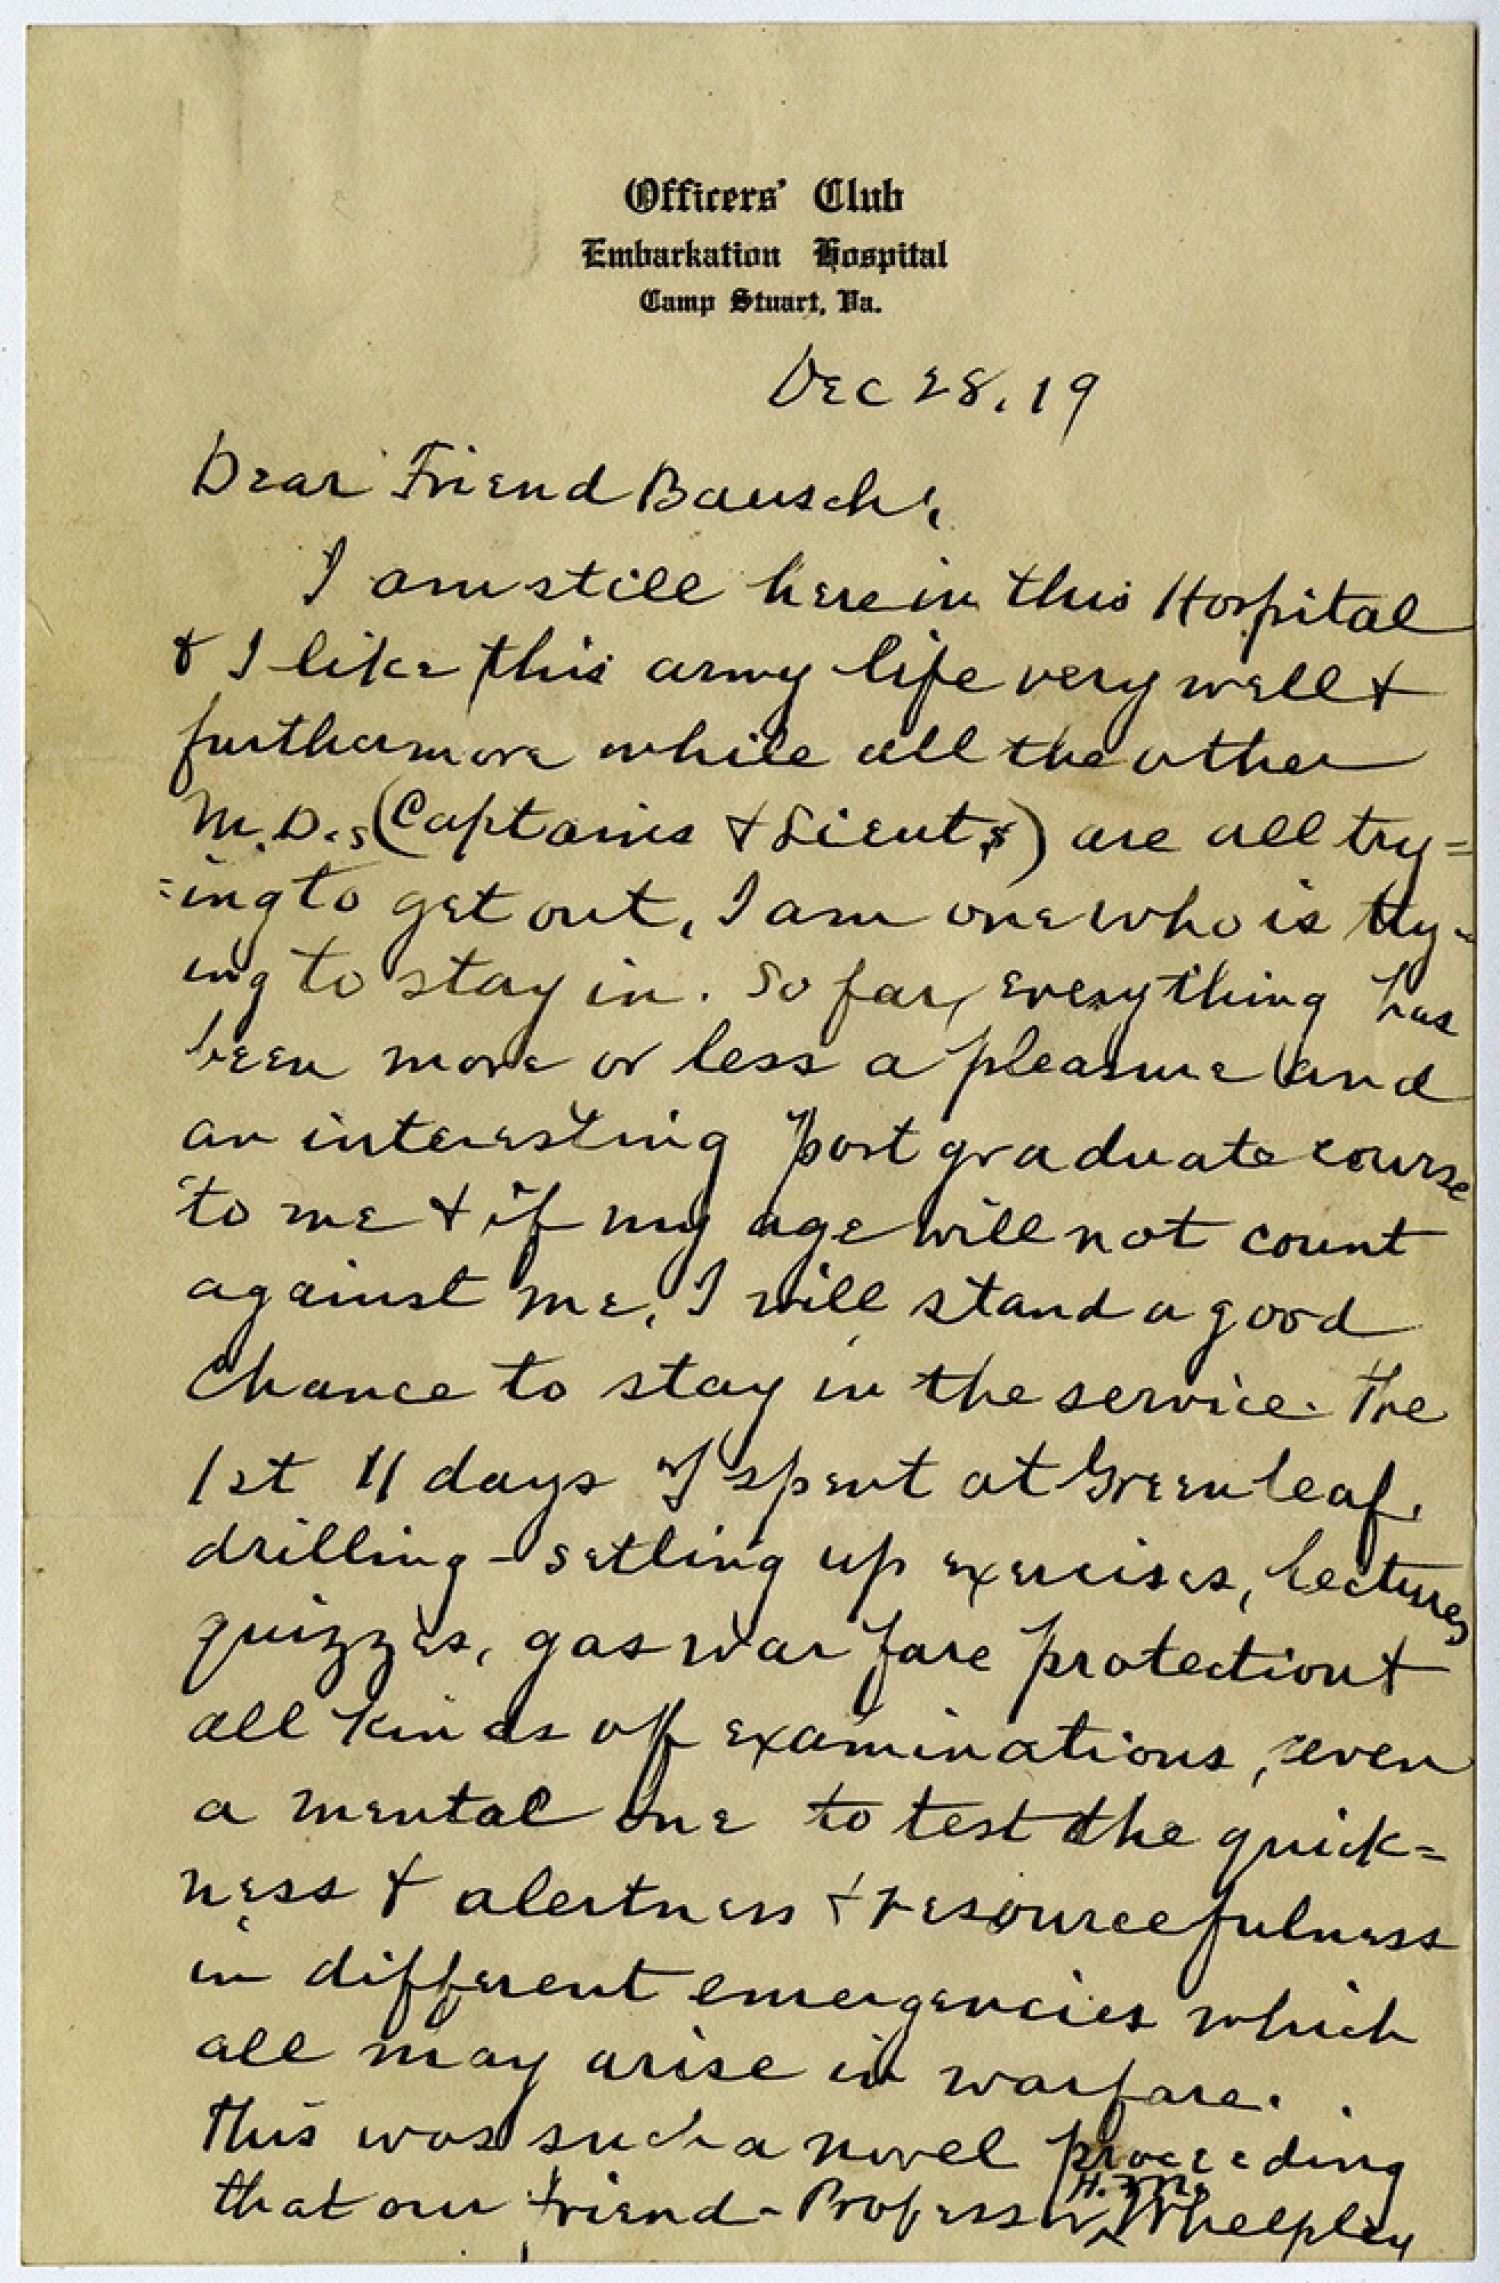 Officers' Club
Embarkation Hospital
Camp Stuart, Va.
Dec 28, 19
Dear Friend Bausch,
I am still here in this Hospital
& I like this army life very well &
furthermore while all the other
M.D.s (Captains & Lieuts) are all try=
=ing to get out, I am one who is try-
ing to stay in. So far, everything has
been more or less a pleasure and
an interesting post graduate course
to me & if my age will not count
against me, I will stand a good
chance to stay in the service. The
1st 11 days I spent at Greenleaf.
drilling - setting up exercises, lectures
quizzes, gas war fare protection &
all kinds of examinations, even
a mental one to test the quick=
ness & alertness & resourcefulness
in different emergencies which
all may arise in warfare.
This was such a novel proceeding
that our friend - Professor H. M. Whelpley